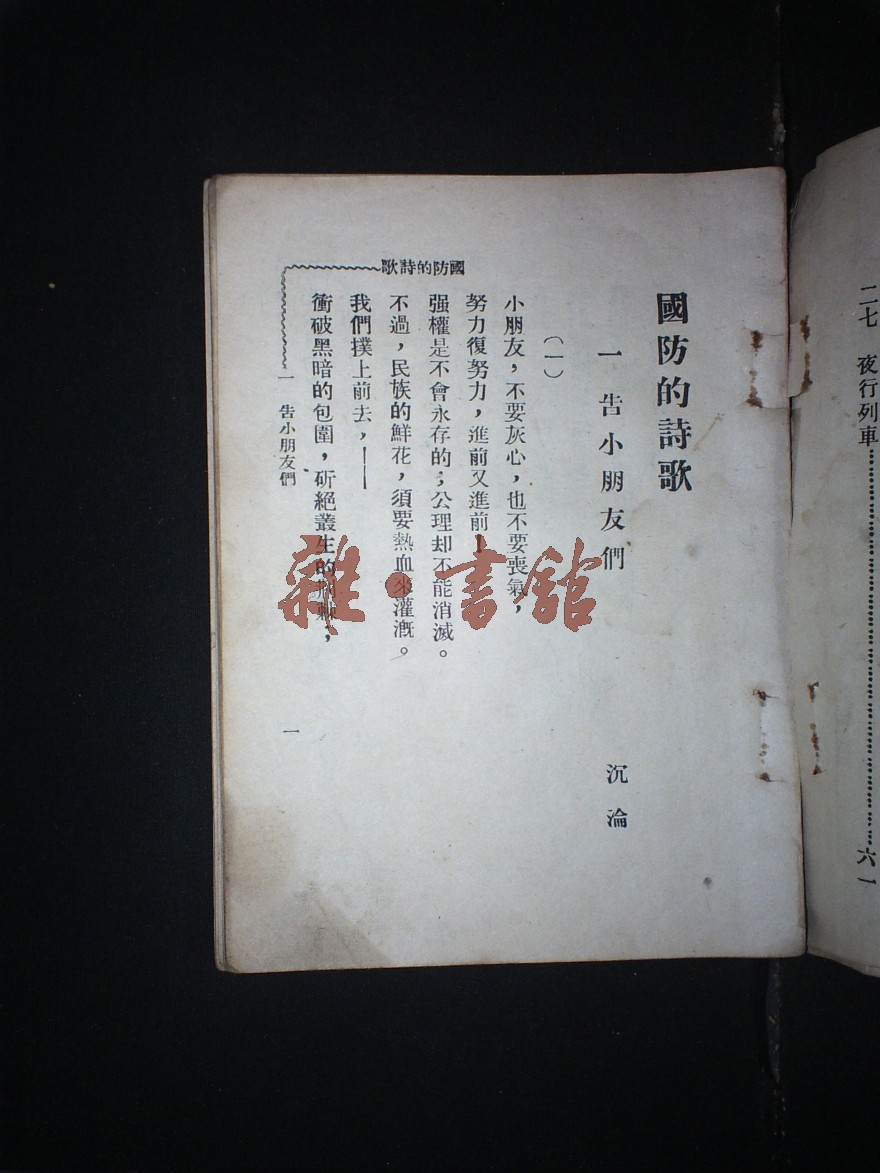 二七　夜行列車……………………六一
國防的詩歌
一　告小朋友們　沉淪
（一）
小朋友，不要灰心，也不要喪氣，
努力復努力，進前又進前！
强權是不會永存的；公理却不能消滅。
不過，民族的鮮花，須要熱血來灌漑。
我們撲上前去，——
衝破黑暗的包圍，斫絕叢生的荊棘，
國防的詩歌
一　告小朋友們
一
雜·書館